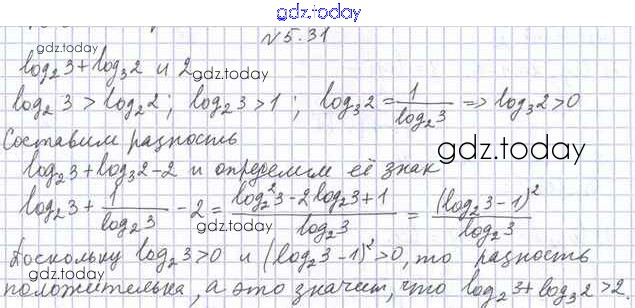 gdz.today
№5.31
log₂3+log₃2 и 2
gdz.today
log₂ 3 > log₂2; log₂3 > 1; log₃2 = 1/log₂3 => log₃2 > 0
Составим разность
gdz.today
log₂3+log₃2-2 и определим её знак
gdz.today
log₂3 + 1/log₂3 - 2 = (log₂²3-2log₂3+1)/log₂3 = (log₂3-1)²/log₂3
Поскольку log₂3>0 и (log₂3-1)²>0, то разность
gdz.today
gdz.today
положительна, а это значит, что log₂3+log₃2>2